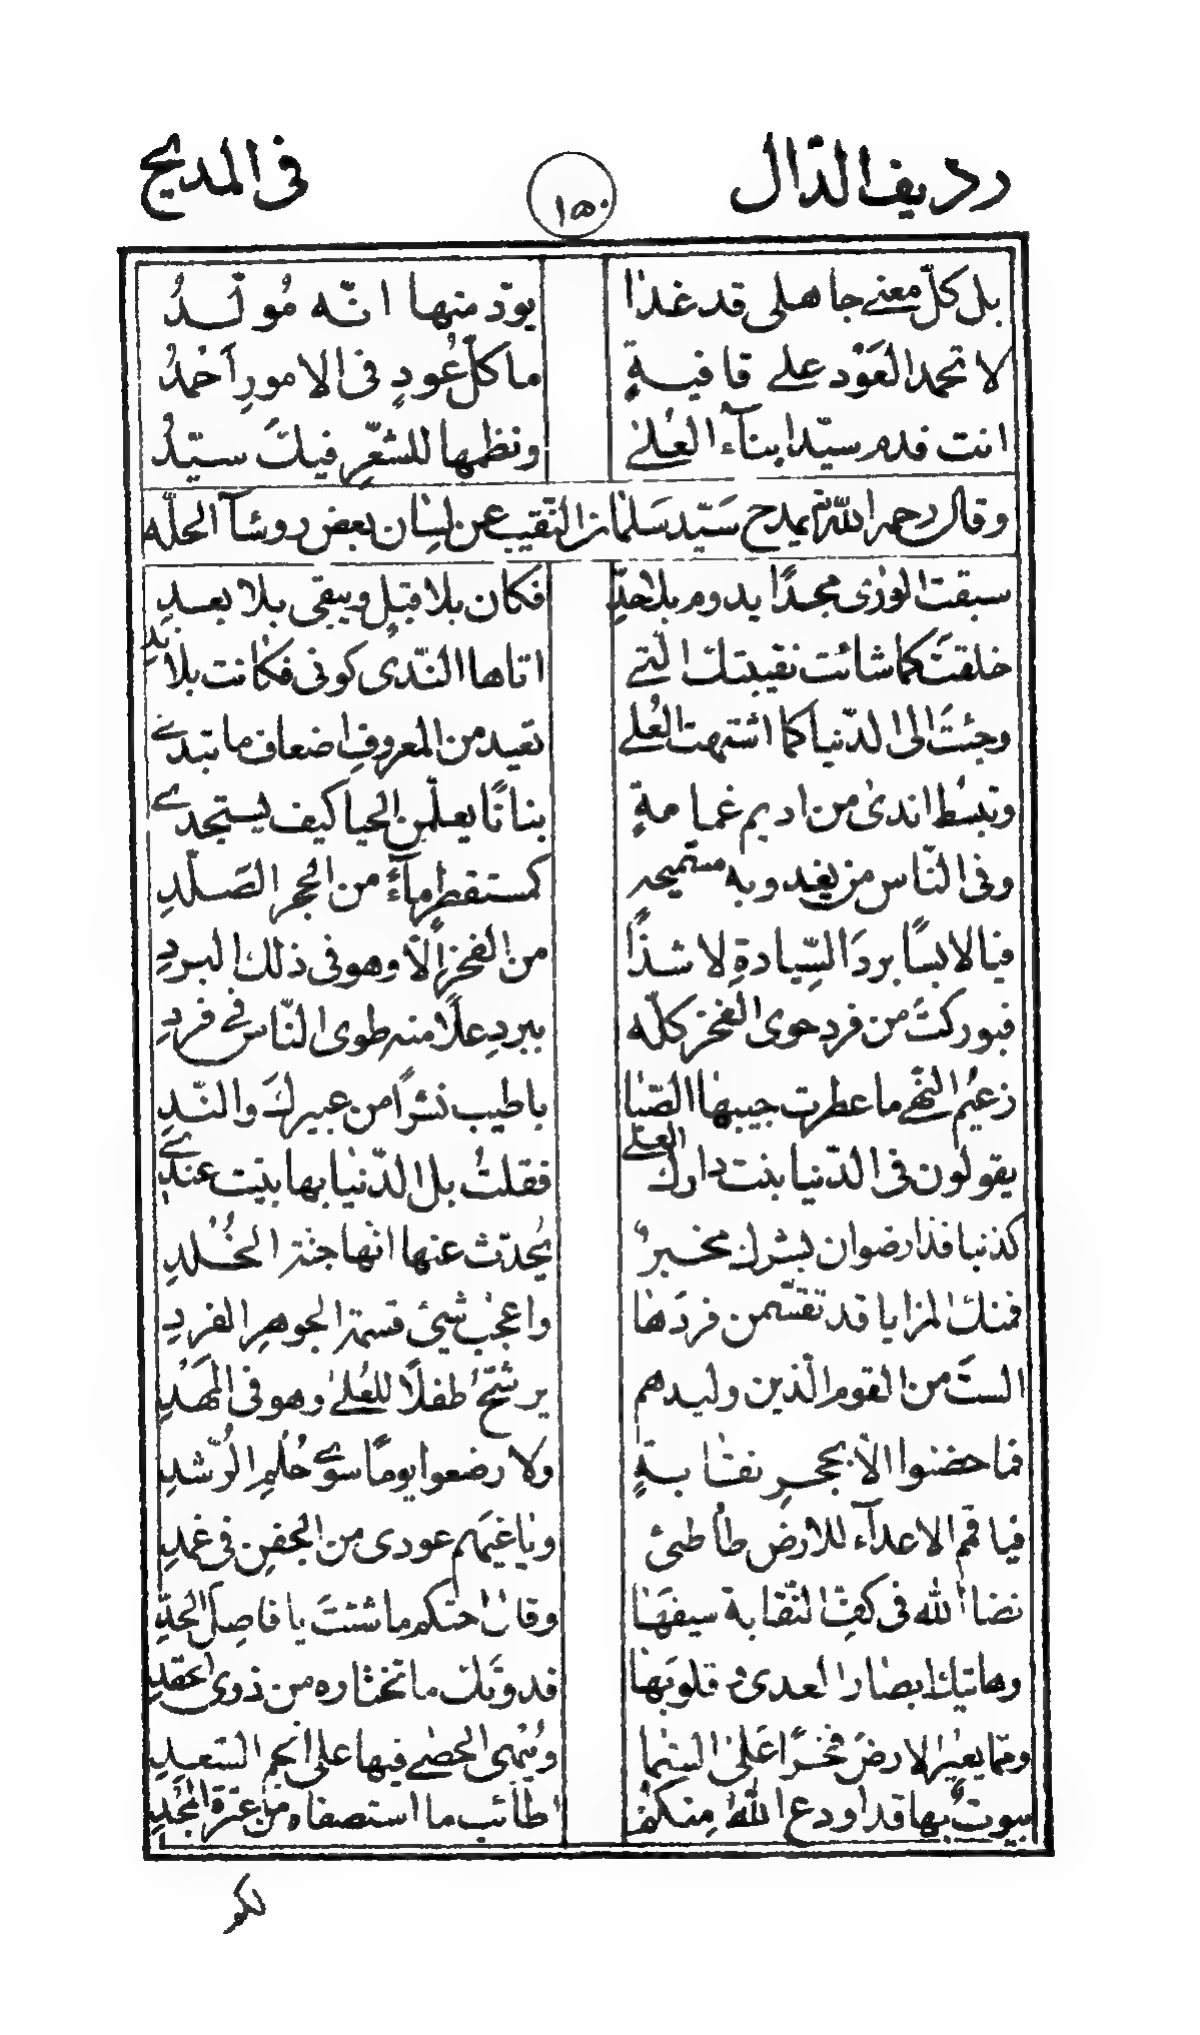 رديف الدّال ١٥٠ في المديح
بل كلّ معنى جاهلي قد غدا يودّ منها انّه مُولّدُ
لا تحمد العَوْد على قافيةٍ ما كلّ عُودٍ في الامورِ اَحْمدُ
انت فدم سيّد ابنآء العُلى ونظمها للشعرِ فيكَ سيّدُ
وقال رحمه الله يمدح سَيّد سَلمان النّقيب عن لسان بعض روسآء الحلّه
سبقتَ الورى مجدًا يدوم بلا حدِّ فكان بلا قبلٍ ويبقى بلا بعدِ
خلقتَ كما شائت نقيبتك الّتي اتاها النّدى كوني فكانت بلا ندِّ
وجئتَ الى الدّنيا كما اشتهت العُلى تعيد من المعروفِ اضعاف ما تبدي
وتبسُط اندى من اديم غمامةٍ بنانًا يعلّمن الحيا كيف يستجدي
وفي النّاس من يغدو به مستميحه كمستقطرٍ مآءً من الحجر الصّلدِ
فيا لابسًا بردَ السّيادةِ لا شذًا من الفخرِ الّا وهو في ذلك البردِ
فبوركتَ من فردٍ حوى الفخر كلّه ببردِ علًا منه طوى النّاس في فردِ
زعيم النّهى ما عطرت جيبها الصّبا باطيب نشرًا من عبيرك والنّدِ
يقولون في الدّنيا بنت دارك العلى فقلتُ بل الدّنيا بها بنيت عندي
كذبنا فذا رضوان بشرك مخبرٌ يُحدّث عنها انّها جنّة الخُلدِ
فمنك المزايا قد تقسّمن فردَها واعجب شيئ قسمة الجوهرِ الفردِ
الستَ من القوم الّذين وليدهم يرشّحُ طفلًا للعُلى وهو في المَهْدِ
فما حضنوا الّا بحجرِ نقابةٍ ولا رضعوا يومًا سوى حُلُمِ الرّشدِ
فيا قمم الاعدآء للارض طأطئ ويا غيمهم عودي من الجفنِ في غمدِ
نضا الله في كفِّ النّقابة سيفَها وقال احتكم ما شئتَ يا فاصِلَ الحدِّ
وهاتيك ابصار العدى وقلوبَها فدونَك ما تختاره من ذوى الحقدِ
وممّا يعير الارضَ فخرًا عَلى السّما ويُنمى الحصى فيها على انجم السّعدِ
بيوتٌ بها قد اودع اللهُ مِنكُمُ اطآئب ما استصفاه من عترة المجدِ